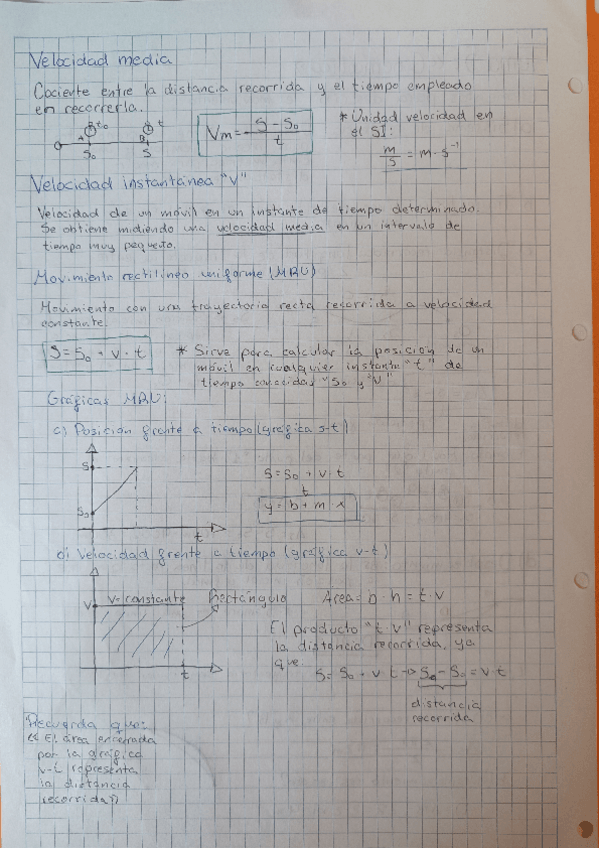 Velocidad media
Cociente entre la distancia recorrida y el tiempo empleado
en recorrerla.
t₀ t
A B
S₀ S
Vm = S - S₀ / t
* Unidad velocidad en
el SI:
m/s = m·s⁻¹
Velocidad instantánea "v"
Velocidad de un móvil en un instante de tiempo determinado.
Se obtiene midiendo una velocidad media en un intervalo de
tiempo muy pequeño.
Movimiento rectilíneo uniforme (MRU)
Movimiento con una trayectoria recta recorrida a velocidad
constante.
S = S₀ + v · t
* Sirve para calcular la posición de un
móvil en cualquier instante "t" de
tiempo conocidas "S₀ y "V"
Gráficas MRU:
a) Posición frente a tiempo (gráfica s-t)
S
S₀
t
S = S₀ + v · t
y = b + m · x
d) Velocidad frente a tiempo (gráfica v-t)
V
v-constante
Rectángulo
t
Área = b · h = t · v
El producto "t v" representa
la distancia recorrida, ya
que
S = S₀ + v · t → S - S₀ = v · t
distancia
recorrida
Recuerda que:
«El área encerrada
por la gráfica
v-t representa
la distancia
recorrida»